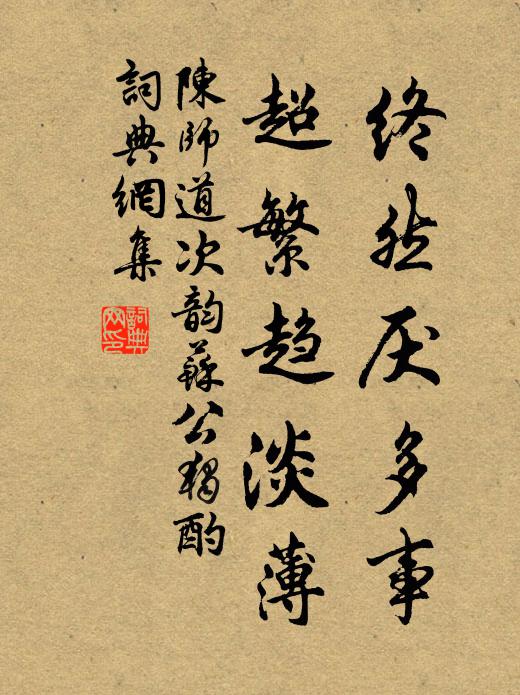 终然厌多事
超繁趋淡薄
陳師道次韵蘇公獨酌
詞典網集
詞典网印